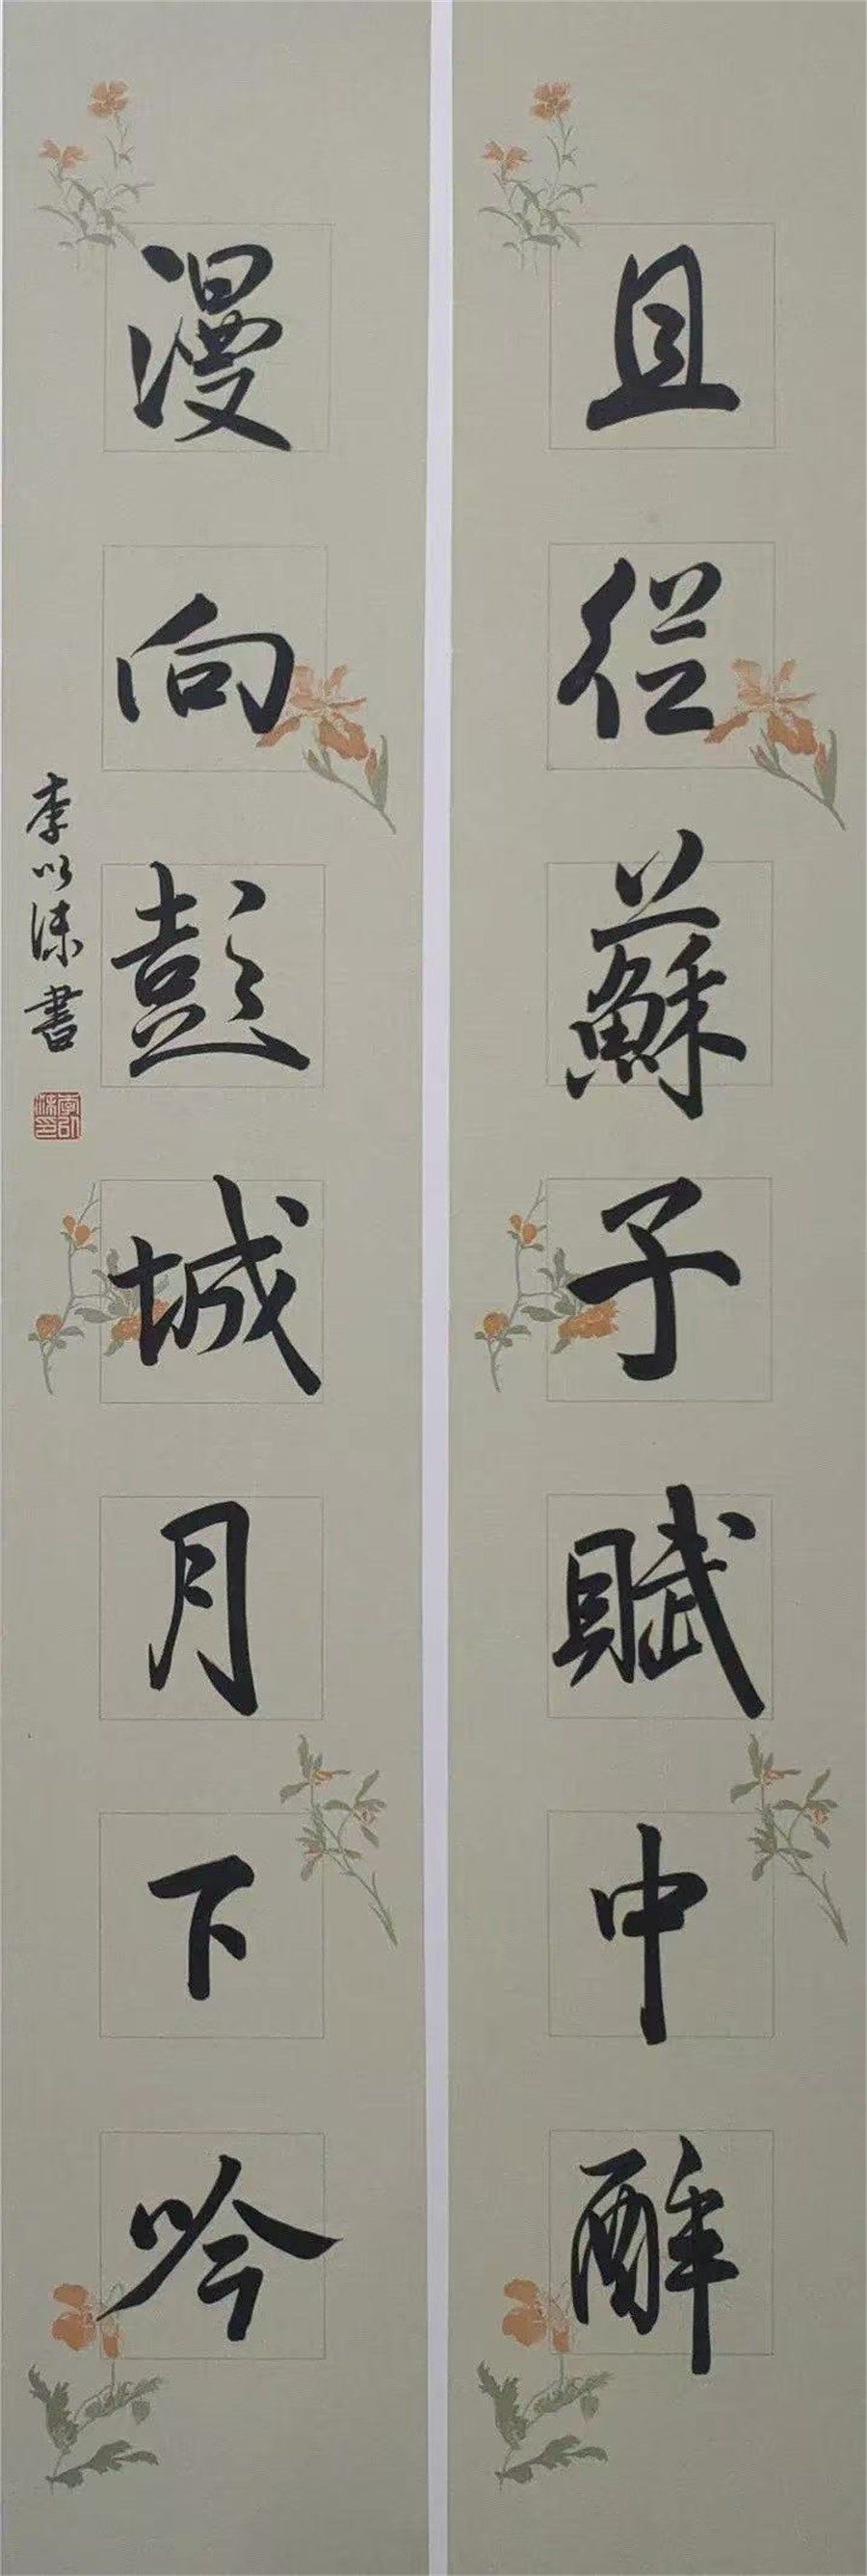 且從蘇子賦中醉
漫向彭城月下吟
李以洡書